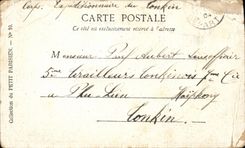 Corps Expéditionnaire du Tonkin
CARTE POSTALE
Ce côté est exclusivement réservé à l'adresse
Monsieur Puy Aubert
5me Tirailleurs Tonkinois 7me Cie
à Phu-Lien Haïphong
Tonkin
Collection du PETIT PARISIEN. — N° 10.